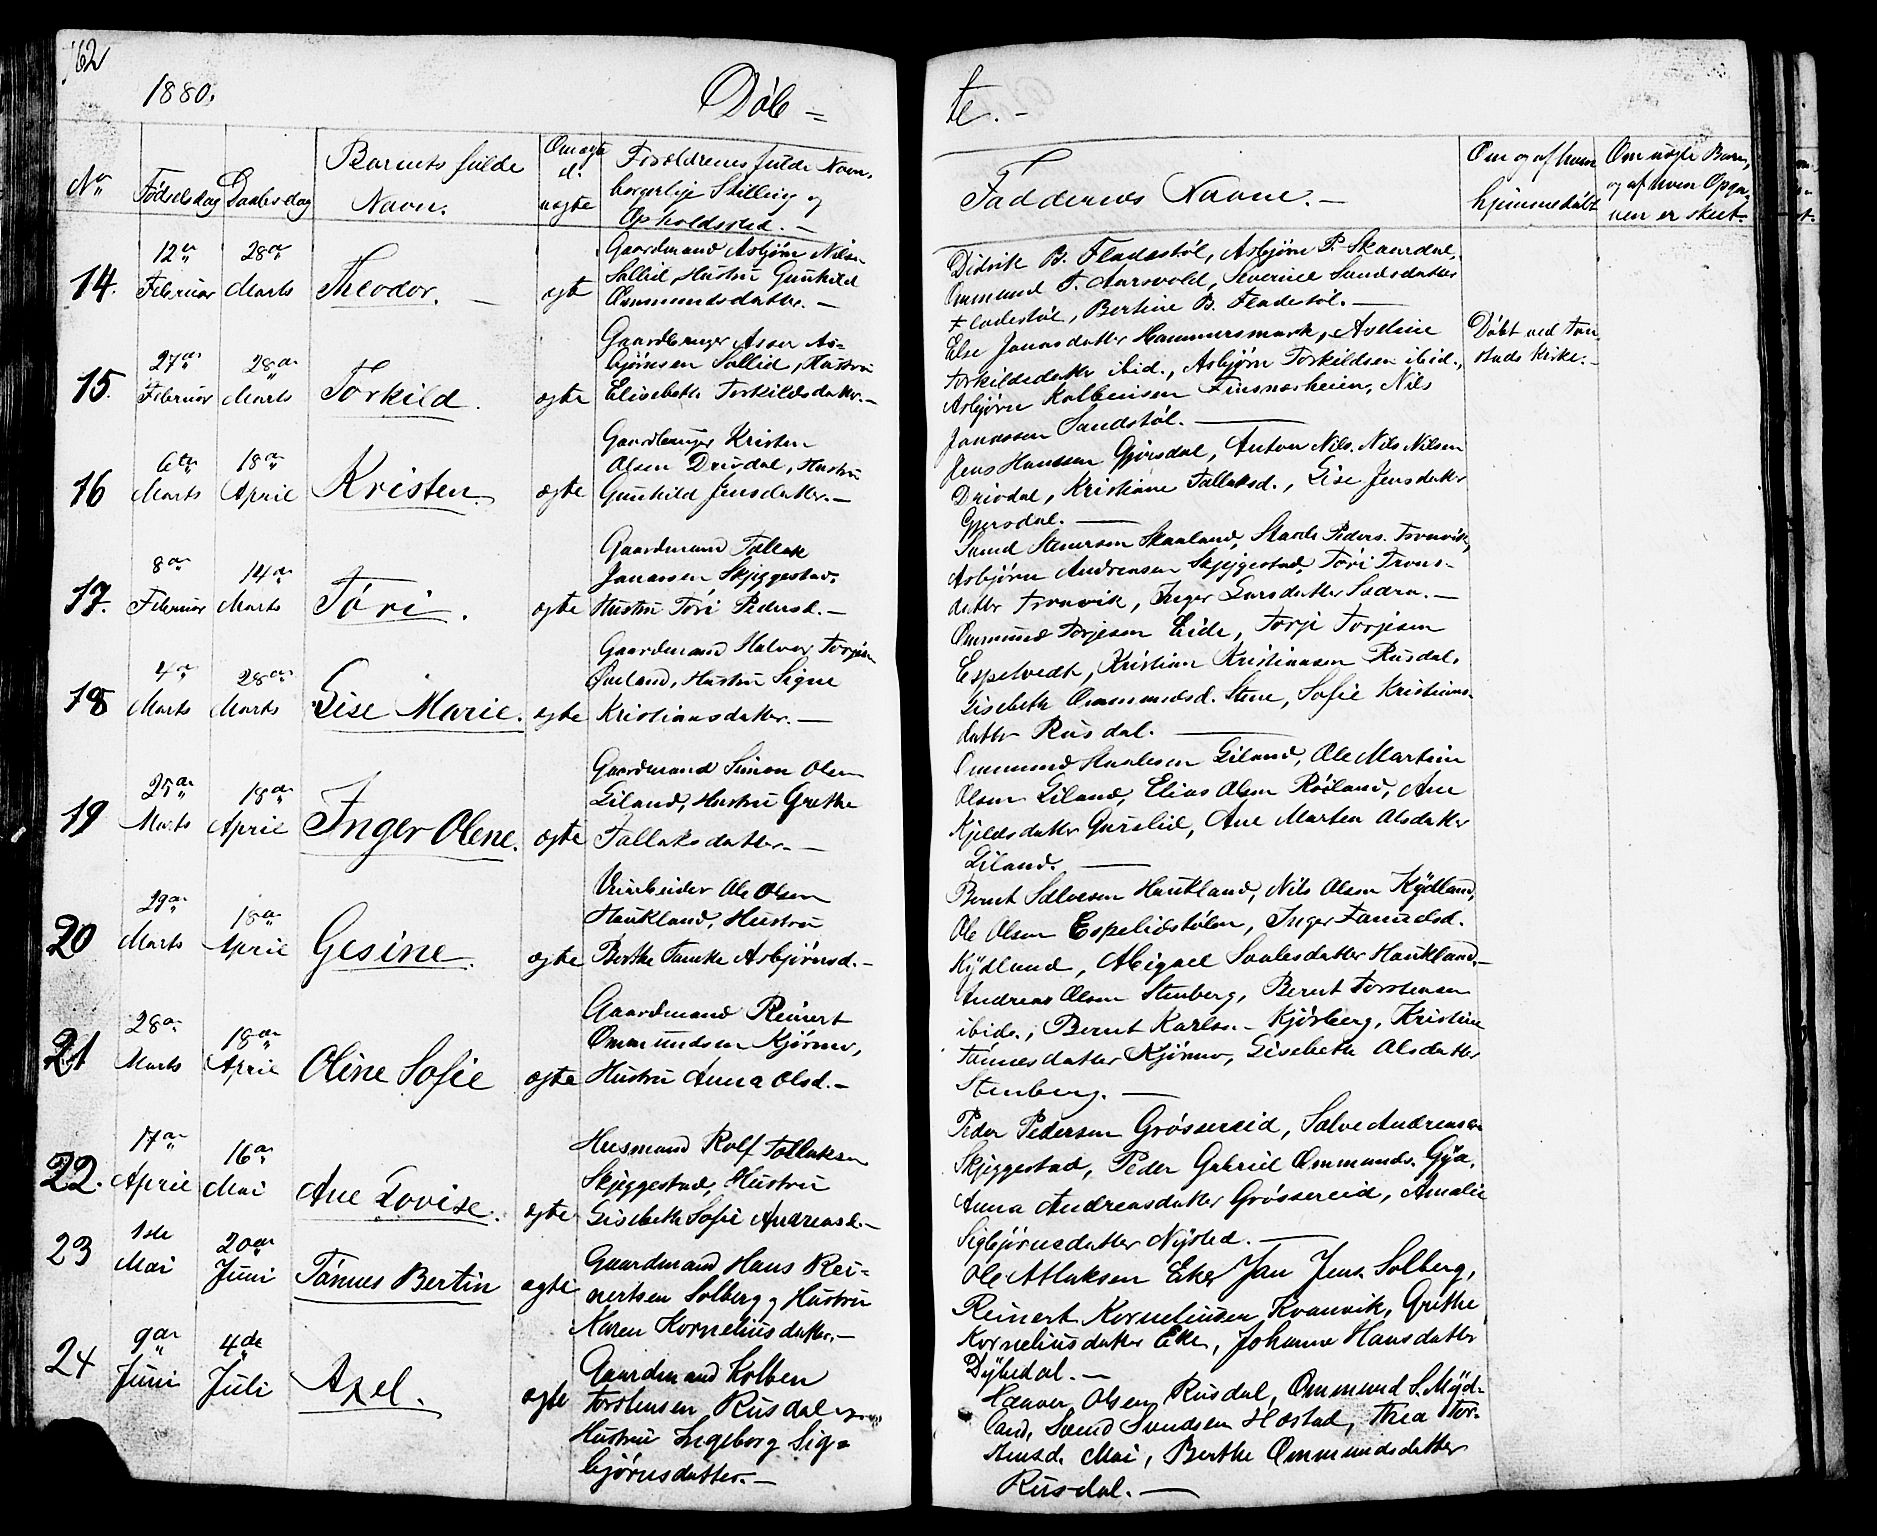 162
1880.
Døb =
te. -
No
Fødselsdag
Daabsdag
Barnets fulde
Navn.
Om ægte
el.
uægte
Forældrenes fulde Navn,
borgerlige Stilling og
Opholdssted. -
Faddernes Navne. -
Om og af hvem
hjemmedøbt
og af hvem Opga-
ven er skeet.
14.
12te
Februar
28de
Marts
Theodor. -
ægte
Gaardmand Asbjørn Nilsen
Sollid, Hustru Gunhild
Ommundsdatter. -
Didrik B. Fladestøl, Asbjørn P. Skaardal,
Ommund T. Aarsvold, Severine
Fladestøl, Bertine B. Fladestøl. -
15.
27de
Februar
28de
Marts
Torkild.
ægte
Gaardbruger Asser As-
bjørnsen Sollid, Hustru
Elisebeth Torkildsdatter. -
Else Jonasdatter Hammersmark, Aveline
Torkildsdatter ibid., Asbjørn Torkildsen ibid.,
Asbjørn Kolbensen Finsnesheien, Nils
Jonassen Sandstøl. -
Døbt ved Ton-
stads Kirke. -
16
6te
Marts
18de
April
Kristen.
ægte
Gaardbruger Kristen
Olsen Drivdal, Hustru
Gunhild Jensdatter. -
Jens Hanssen Gjersdal, Anton Nils. Nils Nilsen
Drivdal, Kristiane Tallaksd., Lise Jensdatter
Gjersdal. -
17.
8de
Februar
14de
Marts
Tøri.
ægte
Gaardmand Tallak
Jonassen Skjeggestad,
Hustru Tøri Pedersd. -
Svend Stenersen Skaaland, Peders. Tronvik,
Asbjørn Andreasen Skjeggestad, Tøri Trons-
datter Tronvik, Inger Larsdatter -
18
4de
Marts
28de
Marts
Lise Marie.
ægte
Gaardmand Halvor Torjesen
Øveland, Hustru Signe
Kristiansdatter. -
Ommund Torjesen Eide, Torje Torjesen
Espetvedt, Kristian Kristiansen Rusdal,
Lisebeth Ommundsd. Stene, Sofie Kristians-
datter Rusdal. -
19
25de
Marts
18de
April
Inger Olene.
ægte
Gaardmand Simon Olsen
Liland, Hustru Grethe
Tallaksdatter. -
Ommund Liland, Ole Martin
Olsen Liland, Elias Olsen Røiland, Ane
Kjeldsdatter Gurslid, Ane Marten Olsdatter
Liland. -
20
29de
Marts
18de
April
Gesine.
ægte
Veiarbeider Ole Olsen
Haukland, Hustru
Berthe Tomke Asbjørnsd. -
Bernt Salvesen Haukland, Nils Olsen Kydland,
Ole Olsen Espelidstølen, Inger
Kydland, Abigael Haukland. -
21
28de
Marts
18de
April
Oline Sofie
ægte
Gaardmand Reinert
Ommundsen Kjørmo,
Hustru Anna Olsd. -
Andreas Olsen Stenberg, Bernt Torstensen
ibid., Bernt Karlsen Kjørberg, Kristine
Tønnesdatter Kjørmo, Lisebeth Olsdatter
Stenberg. -
22.
17de
April
16de
Mai
Ane Lovise.
ægte
Husmand Rolf Tallaksen
Skjeggestad, Hustru
Lisebeth Sofie Andreasd. -
Peder Pedersen Grøssereid, Salve Andreasen
Skjeggestad, Peder Gabriel Ommunds. Gya,
Anna Andreasdatter Grøssereid, Amalie
Sigbjørnsdatter Nysted. -
23
1ste
Mai
20de
Juni
Tønnes Bertin
ægte
Gaardmand Hans Rei-
nertsen Solberg og Hustru
Karen Korneliusdatter. -
Ole Atlaksen Eker Jan Jens. Solberg,
Reinert Korneliussen Kvanvik, Grethe
Korneliusdatter Eke, Johanne Hansdatter
Dybedal. -
24
9de
Juni
4de
Juli
Axel.
ægte
Gaardmand Kolben
Torstensen Rusdal og
Hustru Ingeborg Sig-
bjørnsdatter. -
Olsen Rusdal, Ommund S. Myd-
land, Svend Svendsen Hæstad, Thea Tor-
stensd. Moi, Berthe Ommundsdatter
Rusdal. -